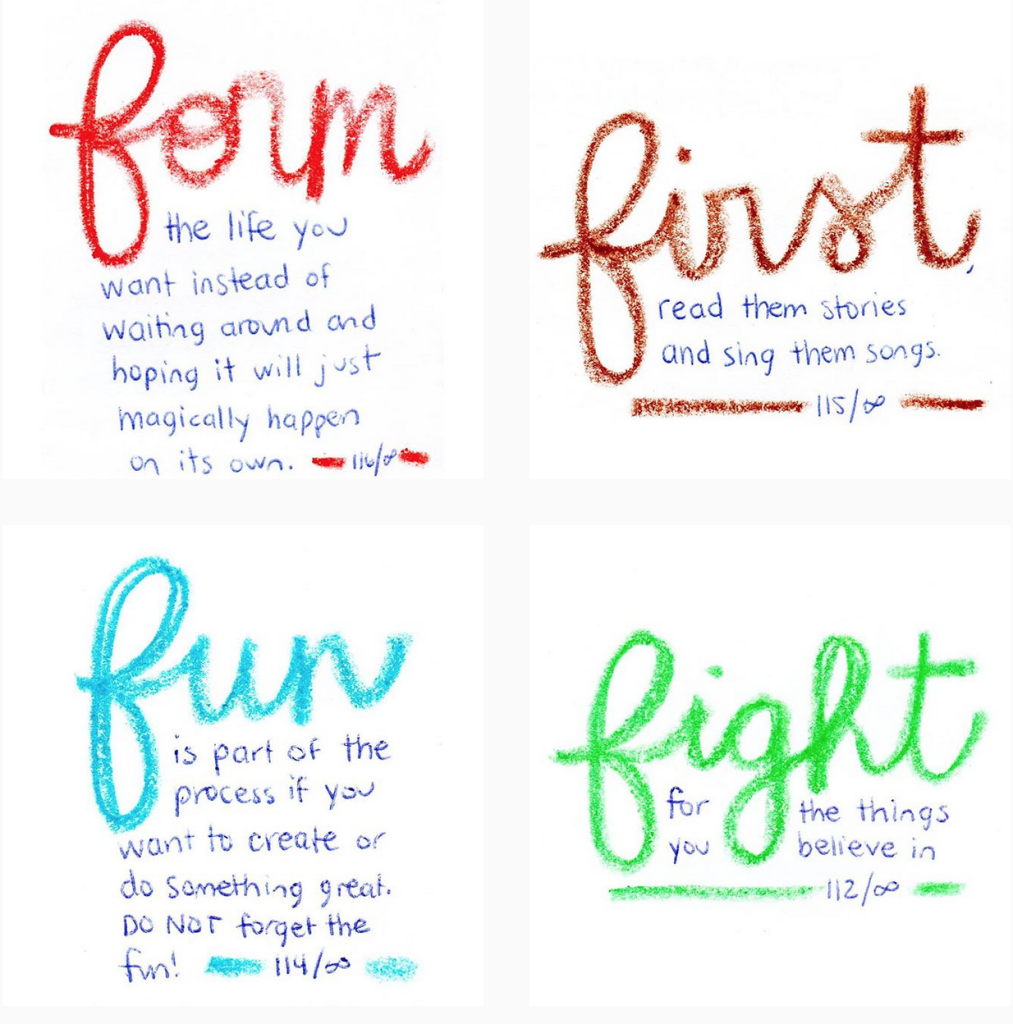 form
the life you
want instead of
waiting around and
hoping it will just
magically happen
on its own. 116/∞
first,
read them stories
and sing them songs.
115/∞
fun
is part of the
process if you
want to create or
do something great.
DO NOT forget the
fun! 114/∞
fight
for the things
you believe in
112/∞